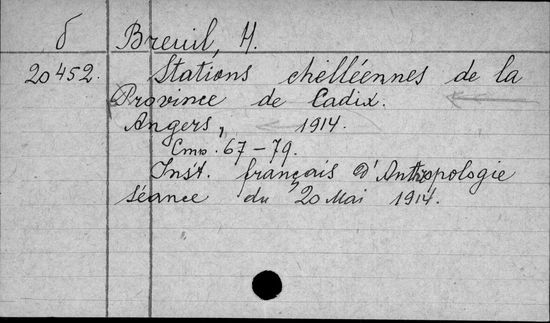 б Breuil, H.
20452. Stations chelléennes de la
Province de Cadix.
Angers, 1914.
Cmp. 67-79.
Inst. français d'Anthropologie
séance du 20 Mai 1914.